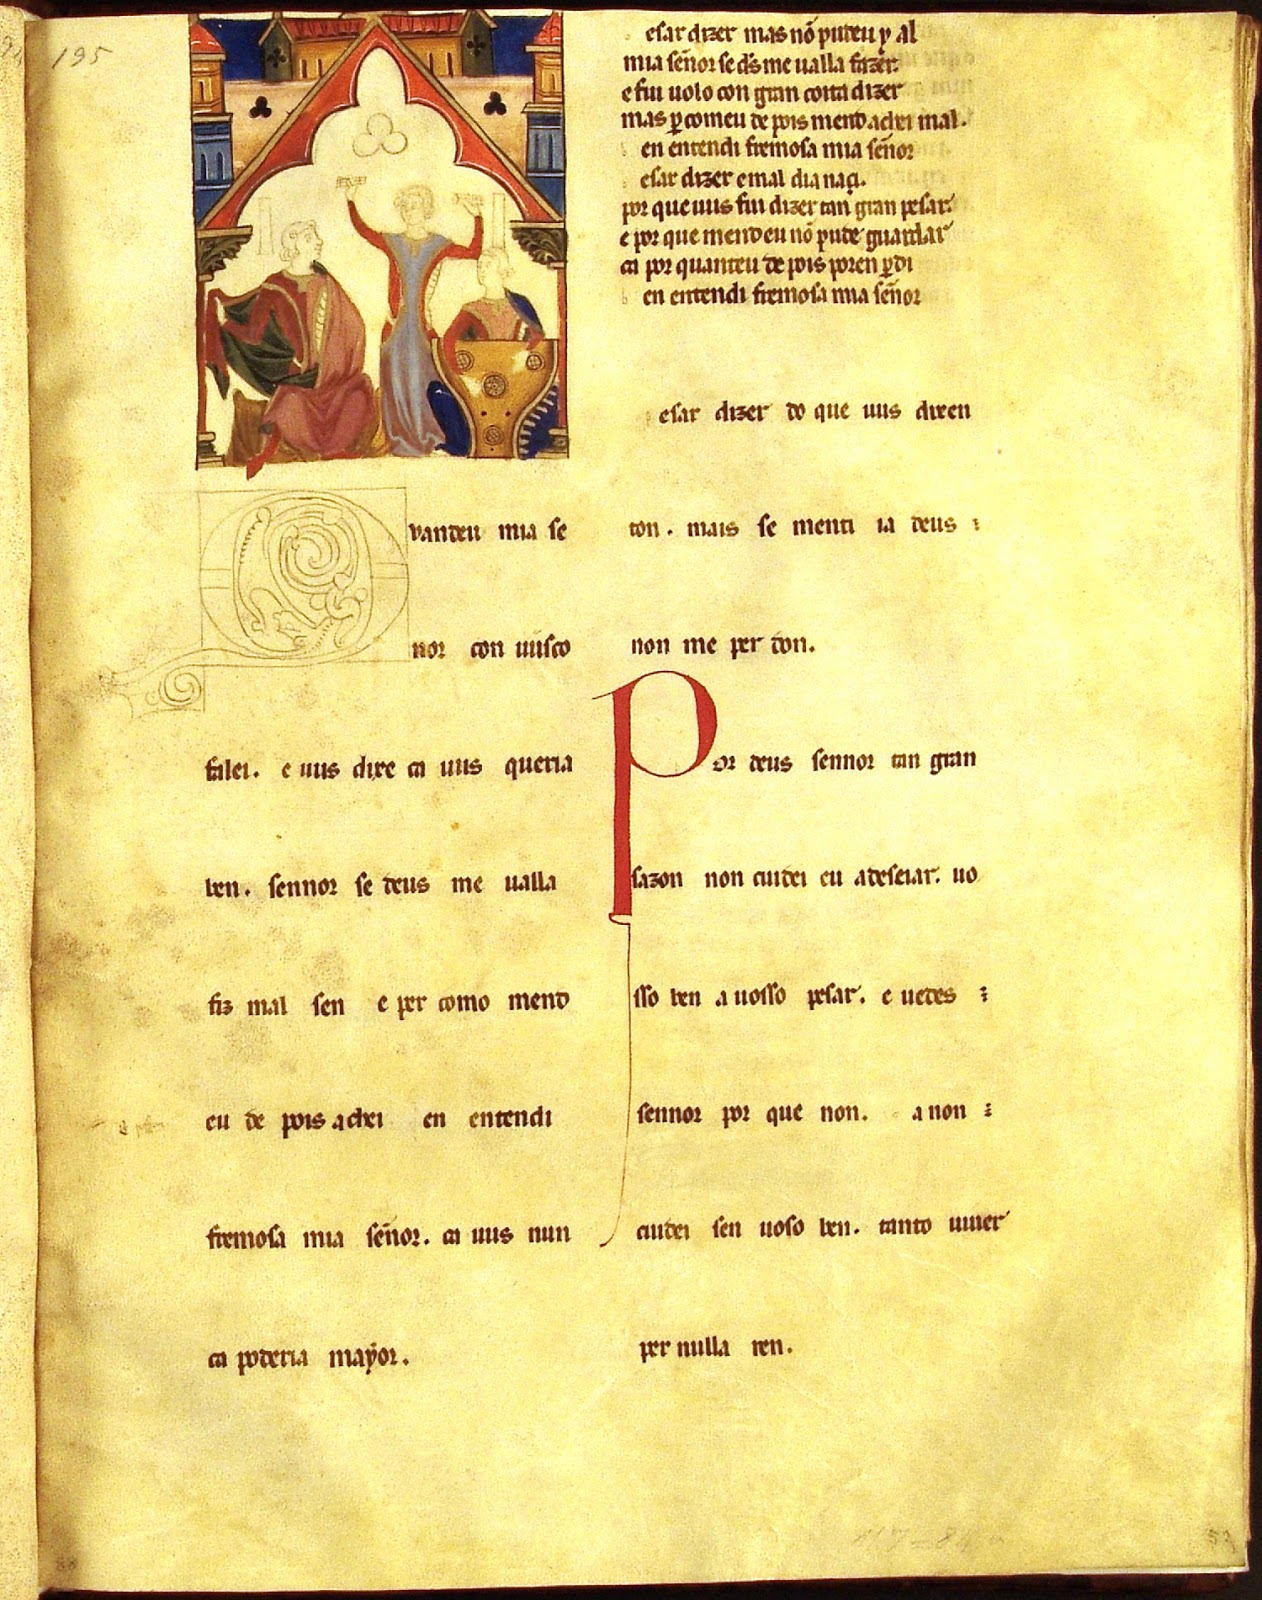 195
vandeu mia se
nor con uusco
falei. e uus dixe ca uus queria
ben. sennor se deus me ualla
fiz mal sen e per como mend
eu de pois achei en entendi
fremosa mia señor. ca uus nun
ca poderia maẏor.
esar dizer mas nõ pudeu y al
mia señor se d̅s me ualla fazer.
e fui uolo con gran coita dizer
mas ꝑcomeu de pois mend achei mal.
en entendi fremosa mia señor
esar dizer e mal dia naçi.
por que uus fui dizer tan gran pesar.
e por que mend eu nõ pude guardar
ca por quanteu de pois poren ꝑdi
en entendi fremosa mia señor
esar dizer do que uus dixen
ton. mais se menti ia deus :
non me per don.
Por deus sennor tan gran
sazon non cuidei eu a deseiar. uo
sso ben a uosso pesar. e uedes :
sennor por que non. a non :
cuidei sen uoso ben. tanto uiuer
per nulla ren.